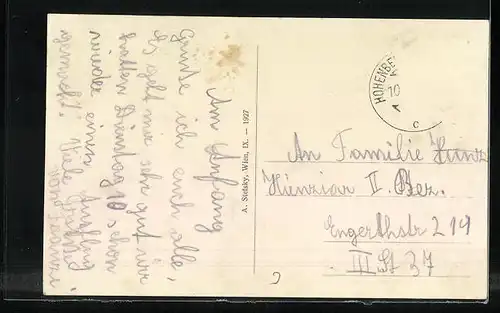 Am Anfang
Grüße ich euch alle,
Es geht mir sehr gut wir
hatten Dienstag 10 schon
wieder einen Ausflug
gemacht. Viele
von
A. Stefsky, Wien, IX. — 1927
HOHENBE
10
C
An Familie
II. Bez.
Engerthstr 219
III St 37